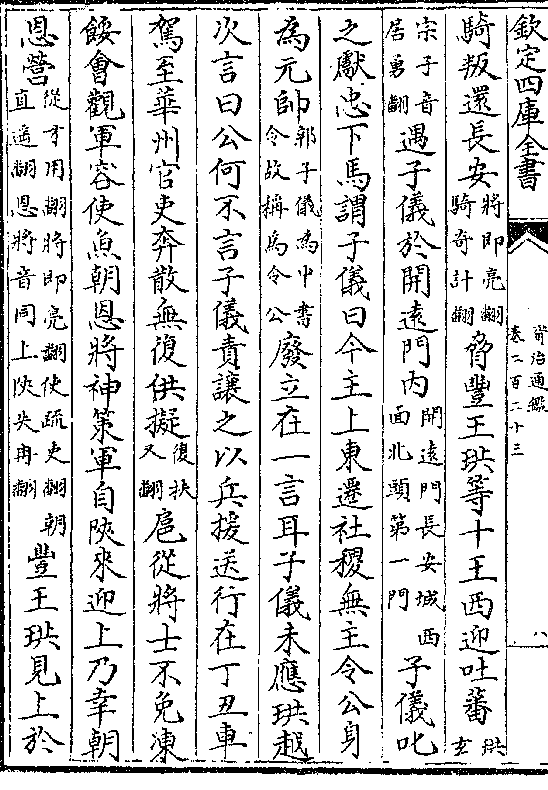 欽定四庫全書
資治通鑑
卷二百二十三
八
騎叛還長安將即亮翻騎奇計翻脅豐王珙等十王西迎吐蕃珙玄
宗子音居勇翻遇子儀於開遠門內開遠門長安城西面北頭第一門子儀叱
之獻忠下馬謂子儀曰今主上東遷社稷無主令公身
為元帥郭子儀為中書令故稱為令公廢立在一言耳子儀未應珙越
次言曰公何不言子儀責讓之以兵援送行在丁丑車
駕至華州官吏奔散無復供擬復扶又翻扈從將士不免凍
餒會觀軍容使魚朝恩將神策軍自陝來迎上乃幸朝
恩營從才用翻將即亮翻使疏吏翻朝直遙翻恩將音同上陝失冉翻豐王珙見上於